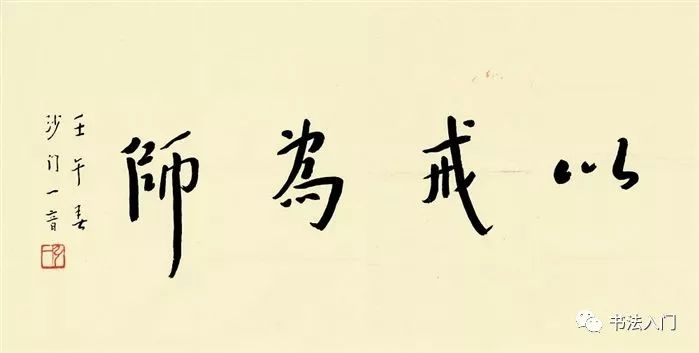 以戒為師
壬午春
沙门一音
书法入门